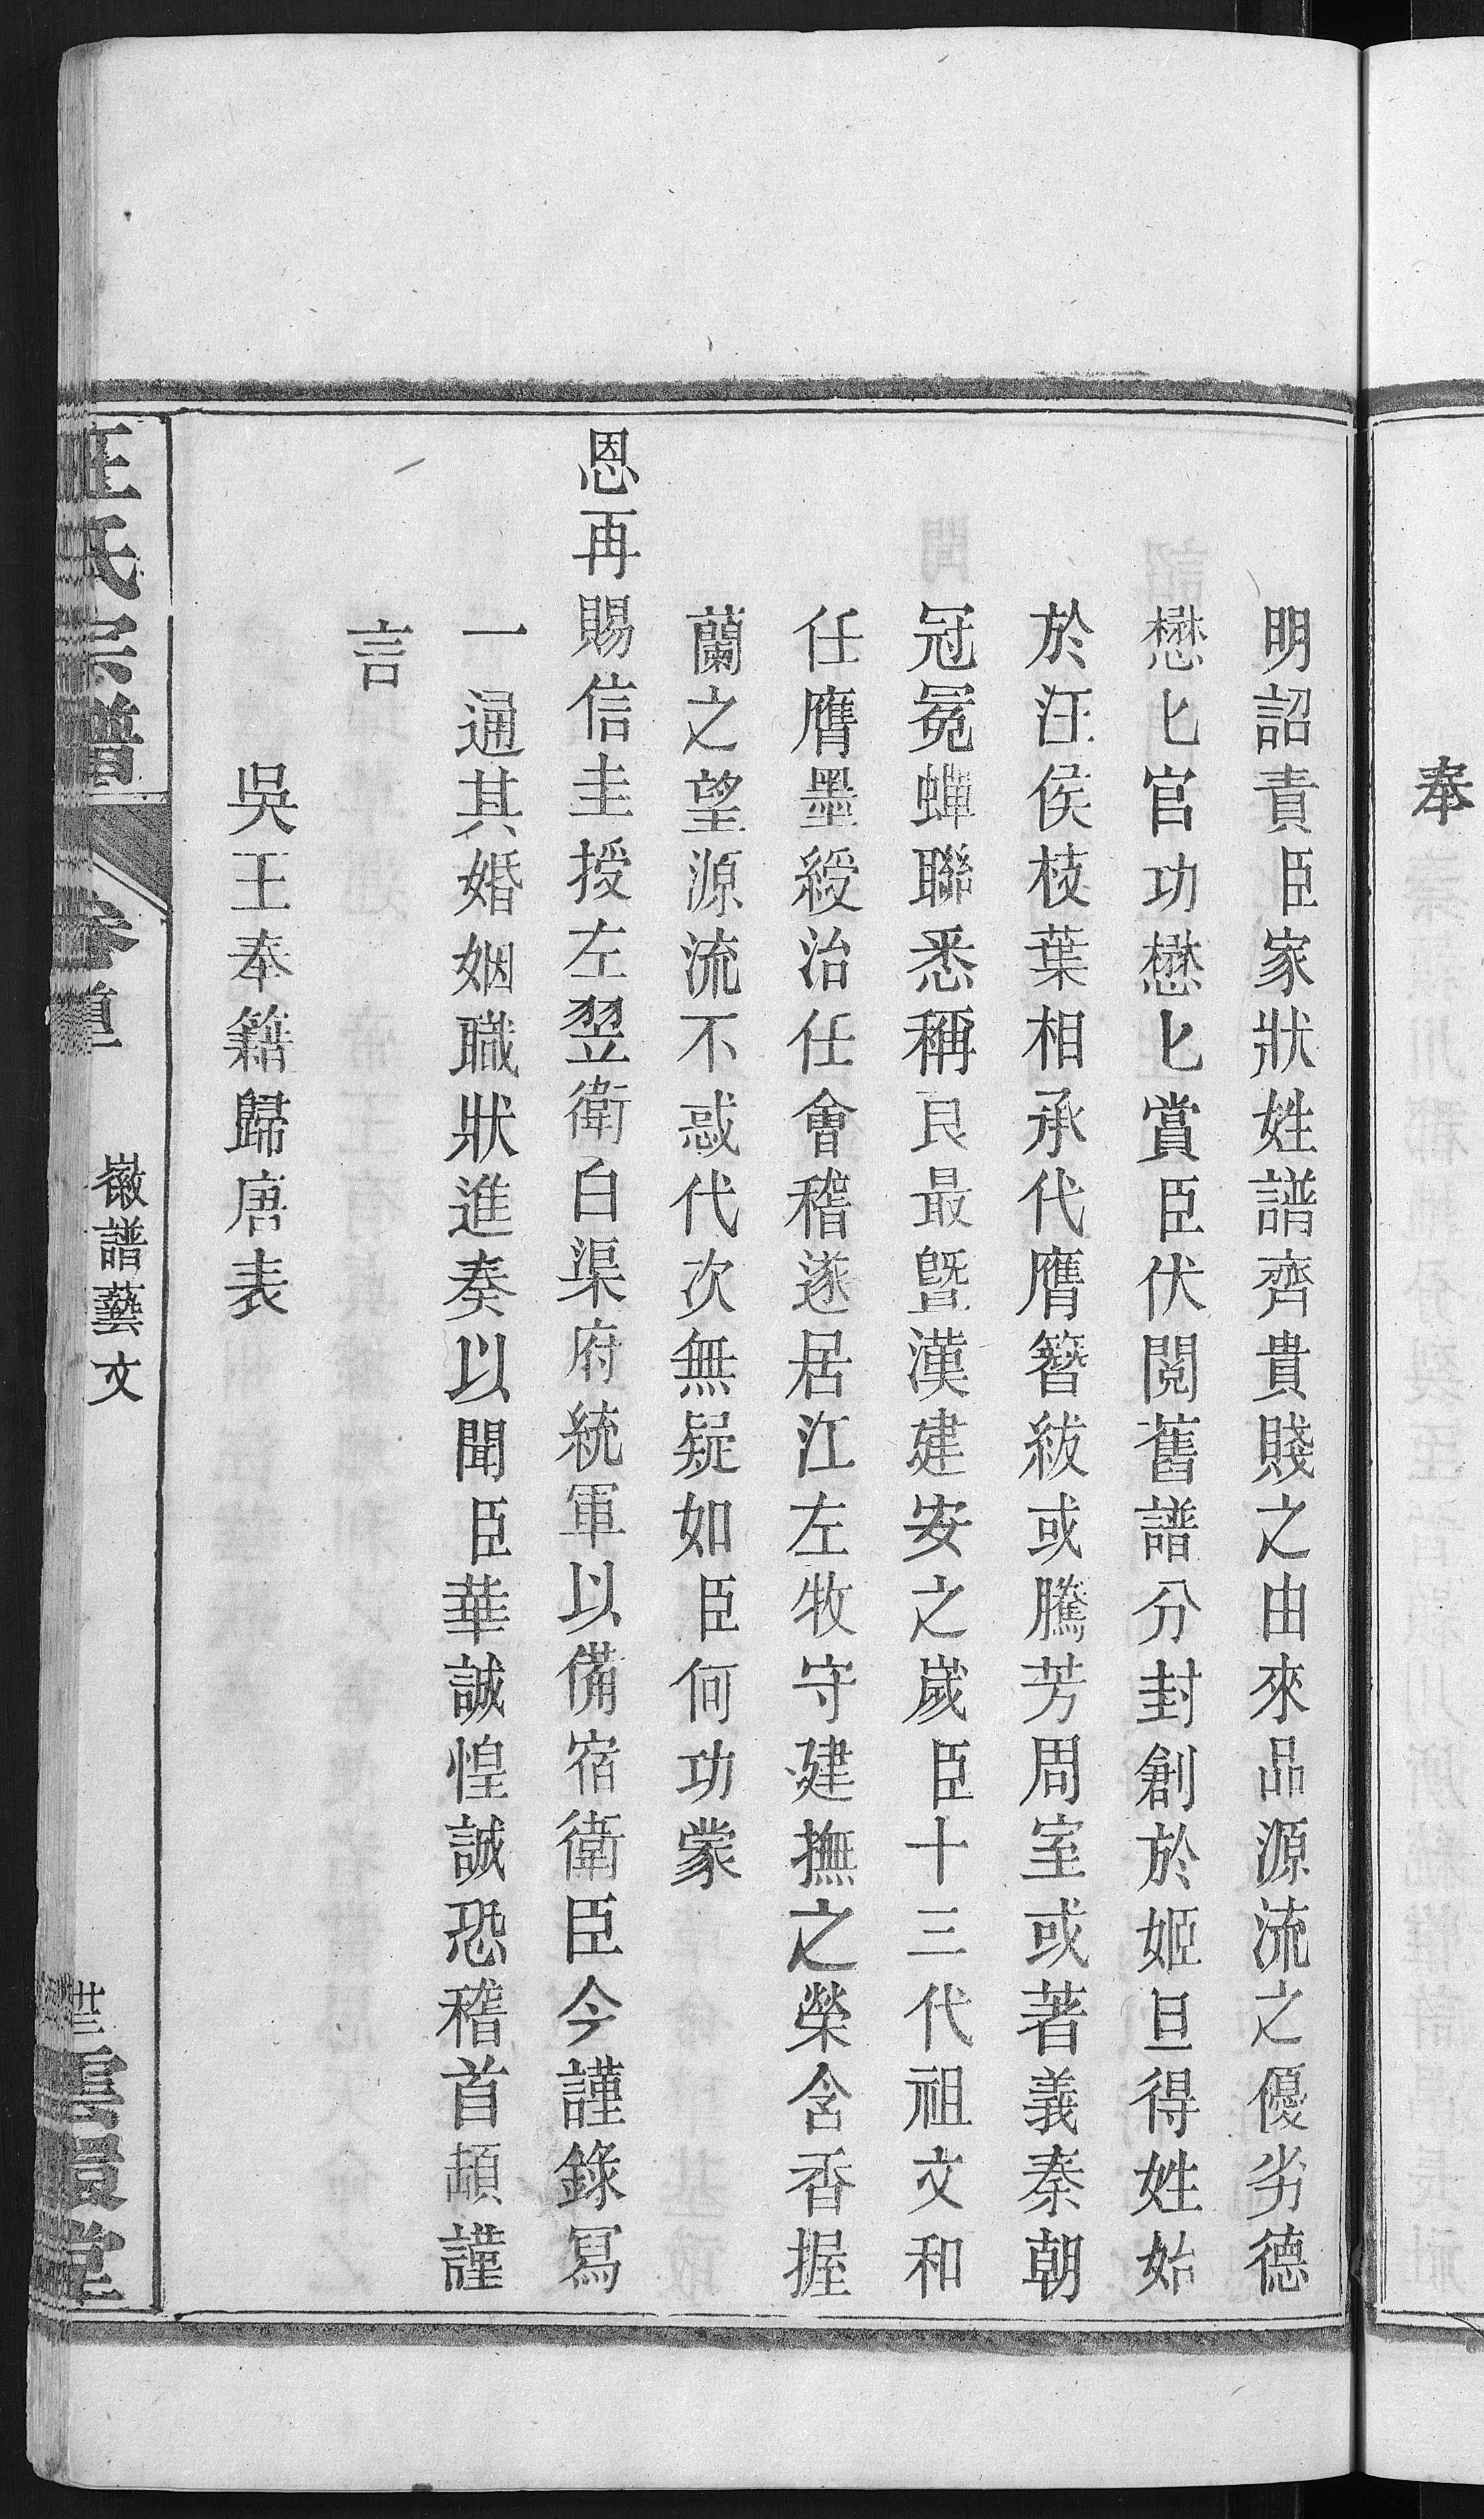 奉
明詔責臣家狀姓譜齊貴賤之由來品源流之優劣德
懋匕官功懋匕賞臣伏閱舊譜分封創於姬旦得姓始
於汪侯枝葉相承代膺簪紱或騰芳周室或著義秦朝
冠冕蟬聯悉稱良最暨漢建安之嵗臣十三代祖文和
任膺墨綬治任會稽遂居江左牧守建撫之榮含香握
蘭之望源流不惑代次無疑如臣何功蒙
恩再賜信圭授左翌衛白渠府統軍以備宿衛臣今謹錄冩
一通其婚姻職狀進奏以聞臣華誠惶誠恐稽首頓謹
言
吳王奉籍歸唐表
汪氏宗譜
卷
徽譜藝文